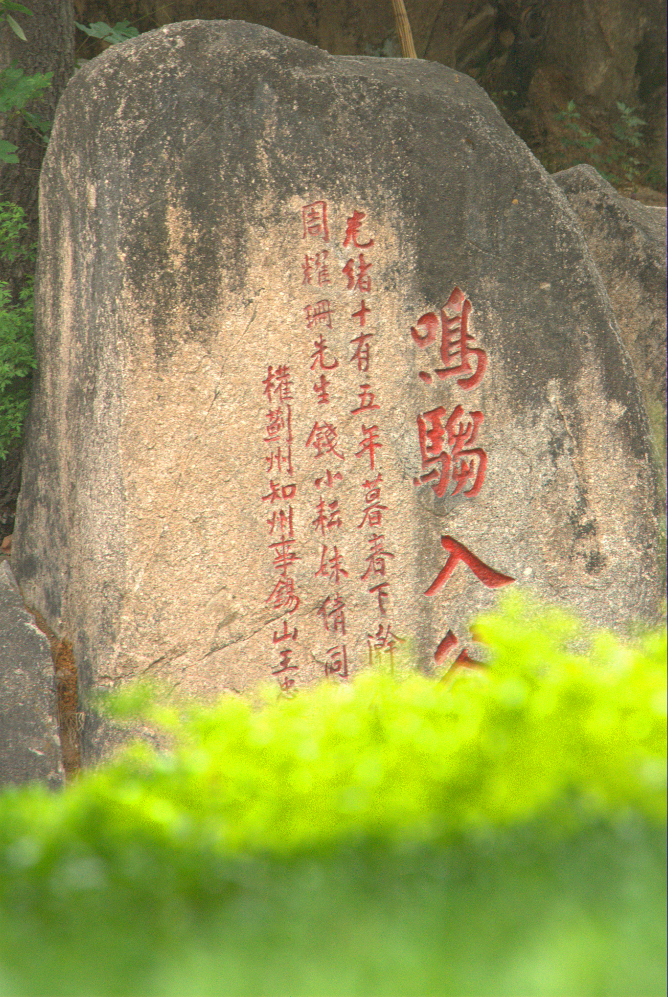 鳴騶入谷
光緒十有五年暮春下澣
周耀珊先生錢小耘妹倩同
權薊州知州華錫山王忠